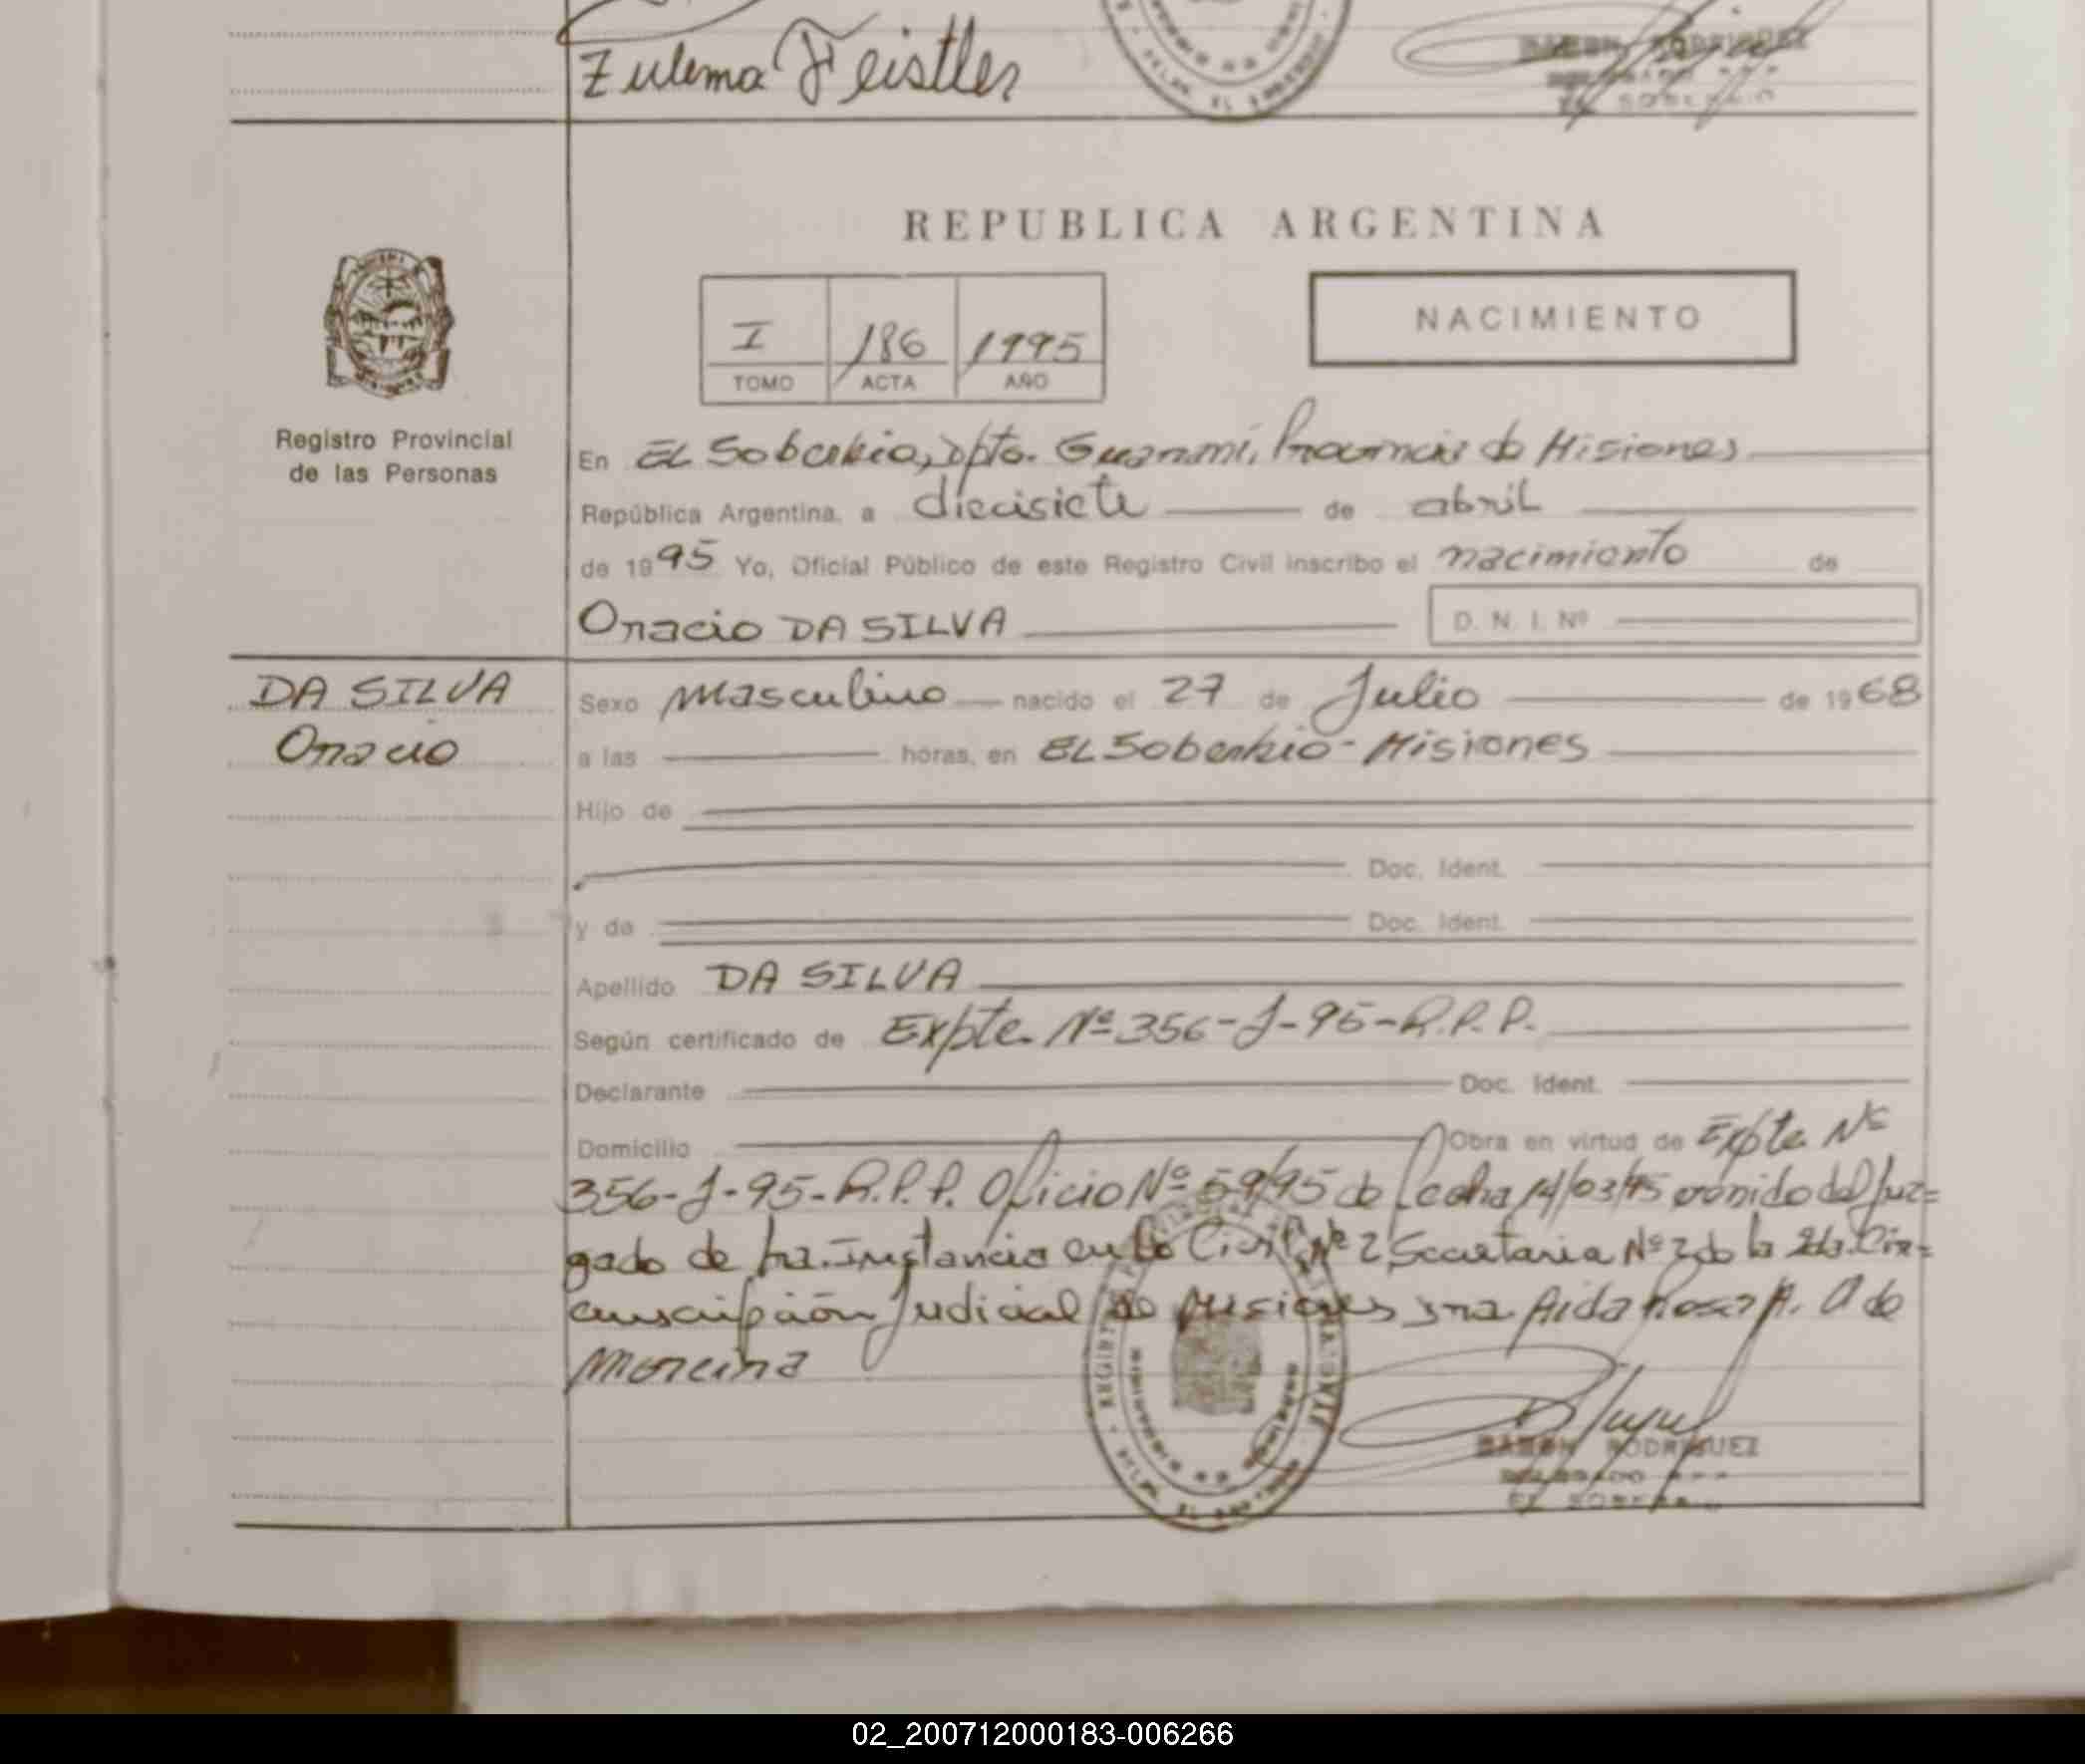 Zulema Feistler
RAMON RODRIGUEZ
REPUBLICA ARGENTINA
NACIMIENTO
I 186 1995
TOMO ACTA AÑO
Registro Provincial
de las Personas
En EL Soberbio, Dpto. Guaraní, Provincia de Misiones
República Argentina, a diecisiete de abril
de 1995 Yo, Oficial Público de este Registro Civil inscribo el nacimiento de
Oracio DA SILVA D. N. I. Nº
DA SILVA
Oracio
Sexo Masculino nacido el 27 de Julio de 1968
a las horas, en EL Soberbio - Misiones
Hijo de
Doc. Ident.
y de Doc. Ident.
Apellido DA SILVA
Según certificado de Expte. Nº 356-J-95-R.P.P.
Declarante Doc. Ident.
Domicilio Obra en virtud de Expte Nº
356-J-95-R.P.P. Oficio Nº 59/95 de fecha 14/03/95 venido del Juz=
gado de 1ra. Instancia en lo Civil Nº 2 Secretaria Nº 2 de la 2da. Cir=
cunscripción Judicial de Misiones Sra Aida Rosa A. de
RAMON RODRIGUEZ
EL SOBERBIO
02_200712000183-006266